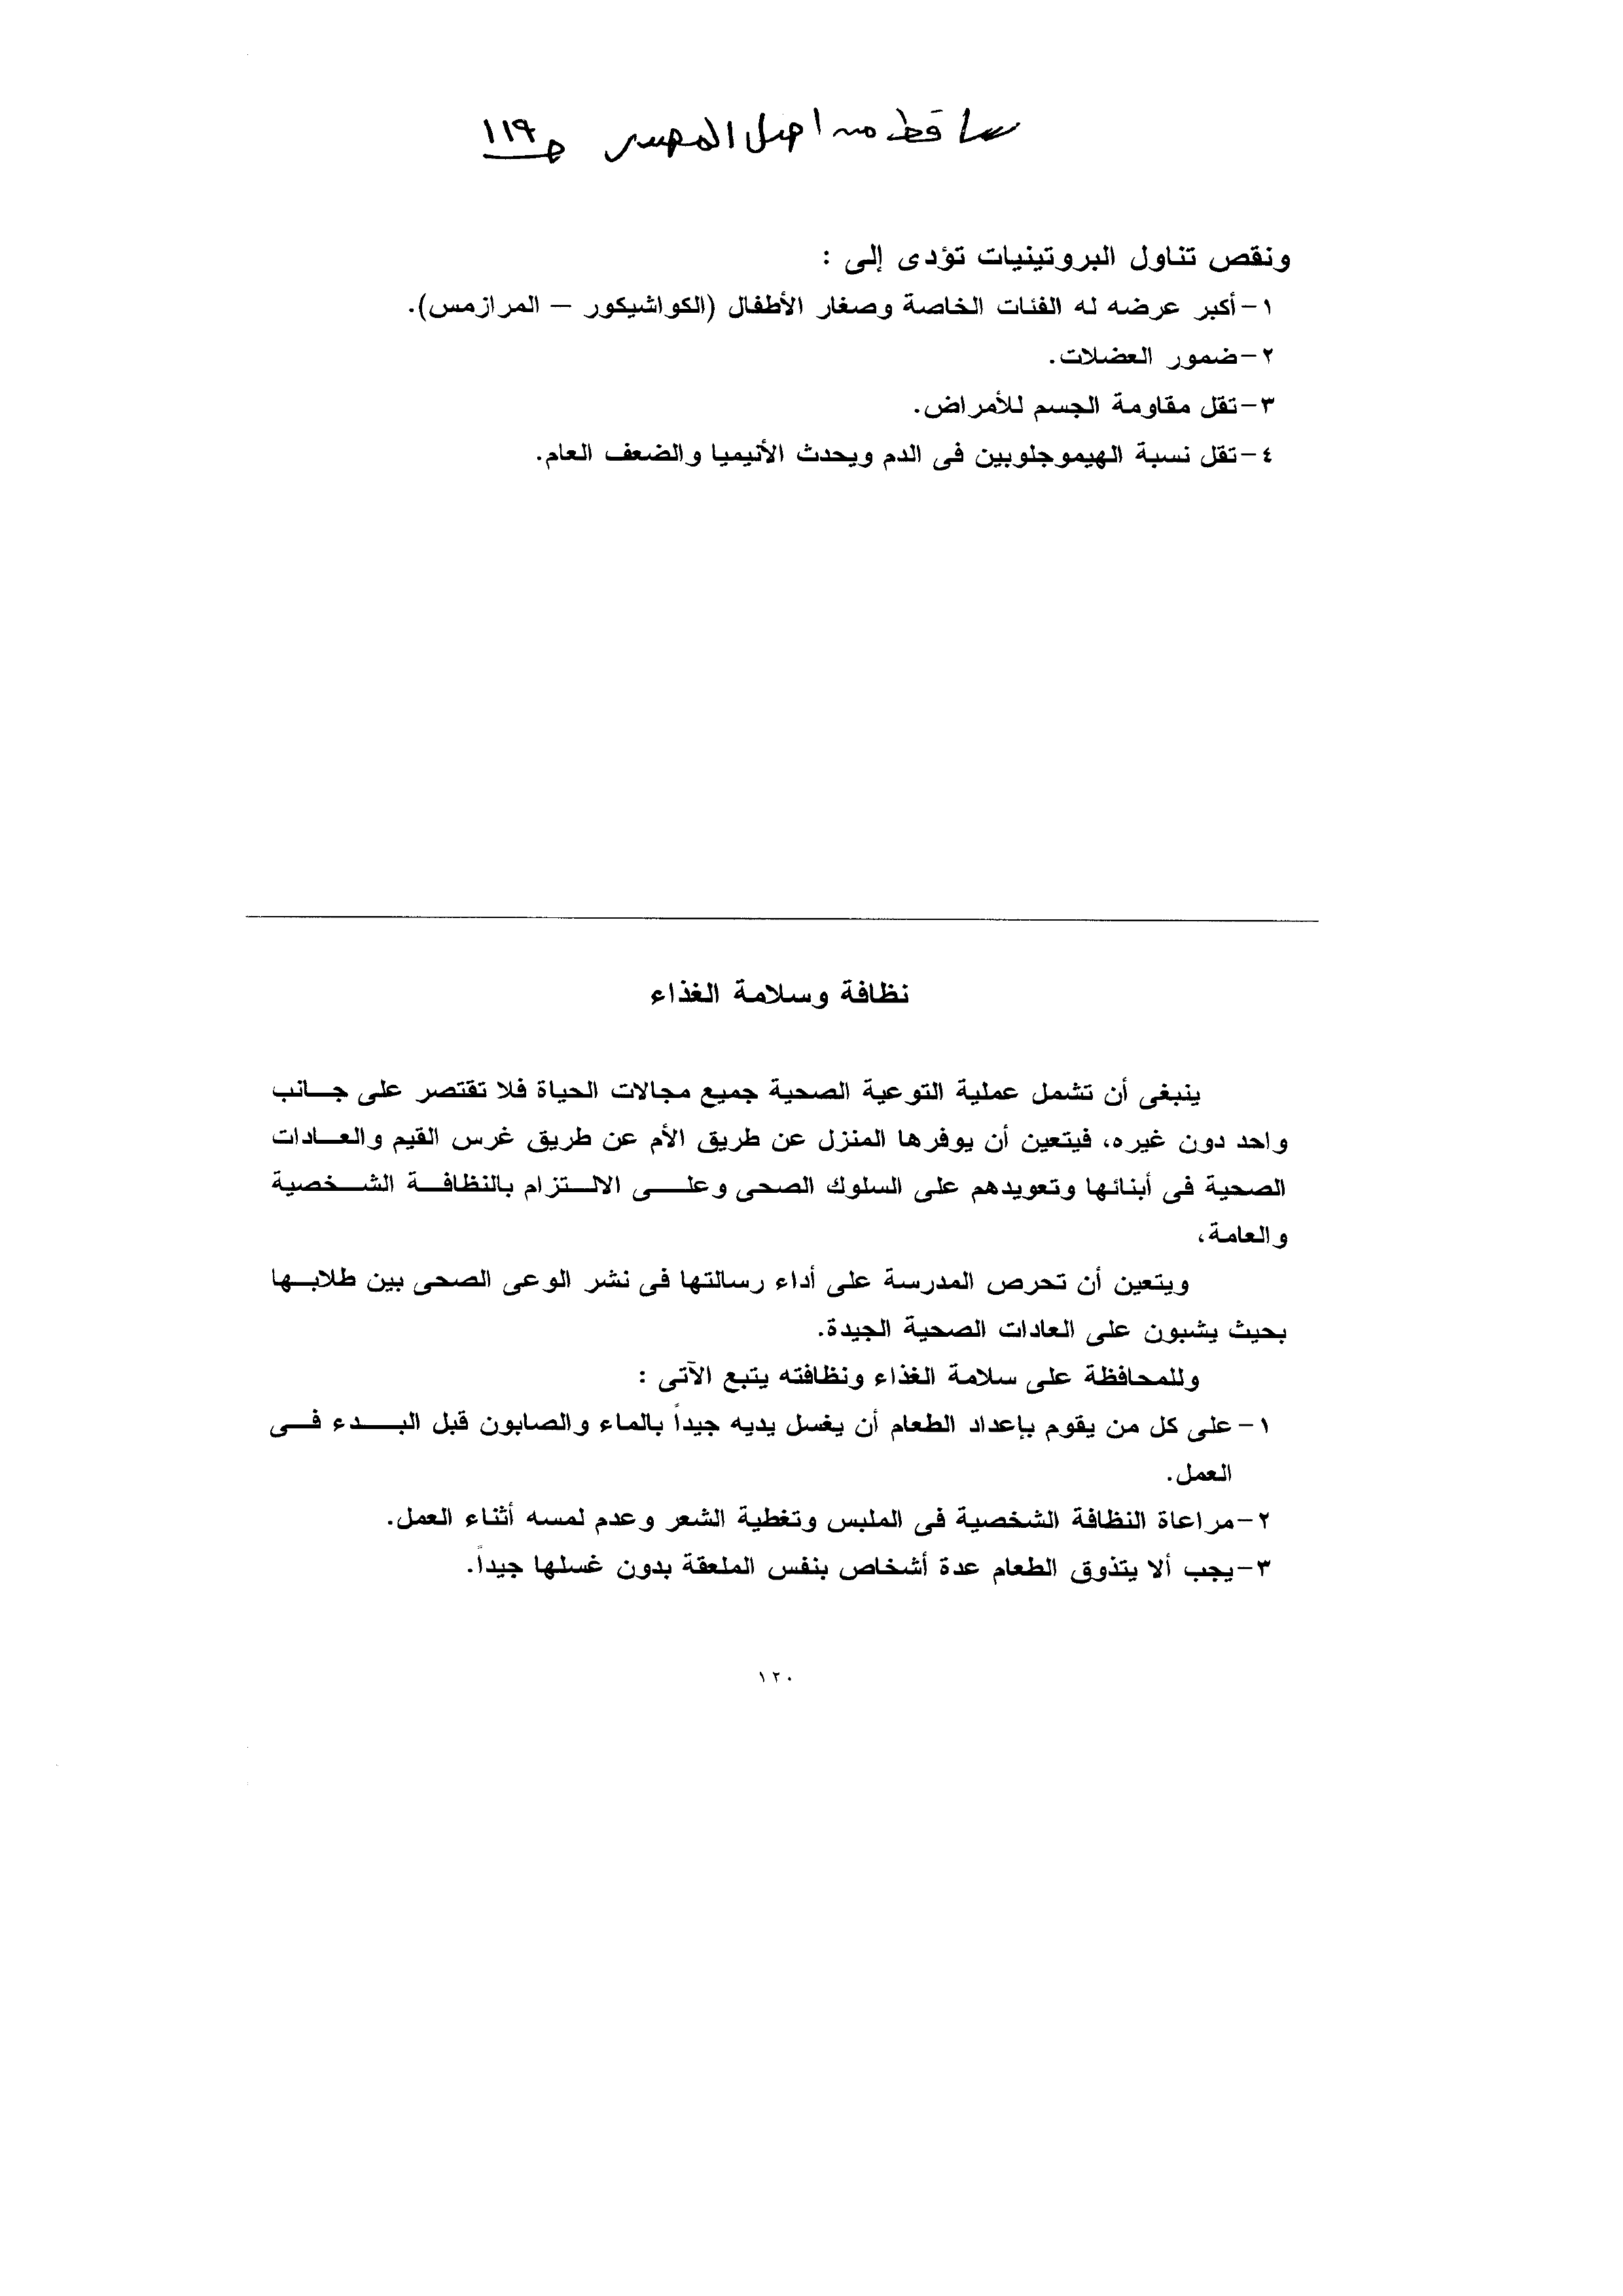 ساقط من اصل المصدر ص ١١٩
ونقص تناول البروتينيات تؤدى إلى :
١- أكبر عرضه له الفئات الخاصة وصغار الأطفال (الكواشيكور – المرازمس).
٢- ضمور العضلات.
٣- تقل مقاومة الجسم للأمراض.
٤- تقل نسبة الهيموجلوبين فى الدم ويحدث الأنيميا والضعف العام.
نظافة وسلامة الغذاء
ينبغى أن تشمل عملية التوعية الصحية جميع مجالات الحياة فلا تقتصر على جانب
واحد دون غيره، فيتعين أن يوفرها المنزل عن طريق الأم عن طريق غرس القيم والعادات
الصحية فى أبنائها وتعويدهم على السلوك الصحى وعلى الالتزام بالنظافة الشخصية
والعامة،
ويتعين أن تحرص المدرسة على أداء رسالتها فى نشر الوعى الصحى بين طلابها
بحيث يشبون على العادات الصحية الجيدة.
وللمحافظة على سلامة الغذاء ونظافته يتبع الآتى :
١- على كل من يقوم بإعداد الطعام أن يغسل يديه جيداً بالماء والصابون قبل البدء فى
العمل.
٢- مراعاة النظافة الشخصية فى الملبس وتغطية الشعر وعدم لمسه أثناء العمل.
٣- يجب ألا يتذوق الطعام عدة أشخاص بنفس الملعقة بدون غسلها جيداً.
١٢٠